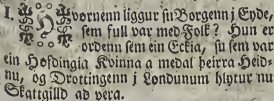 I. Hvornenn liggur su Borgenn j Eyde,
sem full var med Folk? Hun er
ordenn sem ein Eckia, su sem var
ein Hofdingia Kvinna a medal þeirra Heid-
nu, og Drottingenn j Londunum hlytur nu
Skattgilld ad vera.